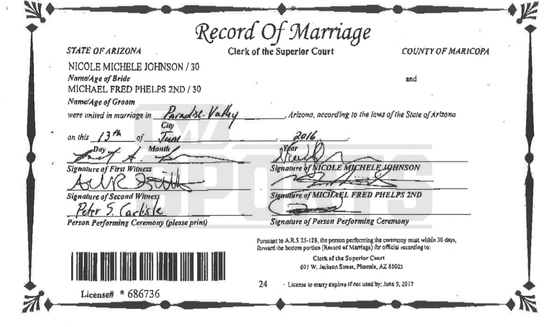 Record Of Marriage
STATE OF ARIZONA Clerk of the Superior Court COUNTY OF MARICOPA
NICOLE MICHELE JOHNSON / 30
Name/Age of Bride and
MICHAEL FRED PHELPS 2ND / 30
Name/Age of Groom
were united in marriage in Paradise Valley, Arizona, according to the laws of the State of Arizona
City
on this 13th of June, 2016
Day Month Year
Signature of First Witness Signature of NICOLE MICHELE JOHNSON
Signature of Second Witness Signature of MICHAEL FRED PHELPS 2ND
Peter S. Carlisle
Person Performing Ceremony (please print) Signature of Person Performing Ceremony
Pursuant to A.R.S 25-128, the person performing the ceremony must within 30 days,
forward the bottom portion (Record of Marriage) for official recording to:
Clerk of the Superior Court
601 W. Jackson Street, Phoenix, AZ 85003
License# * 686736
24 - License to marry expires if not used by: June 9, 2017
SPORTS